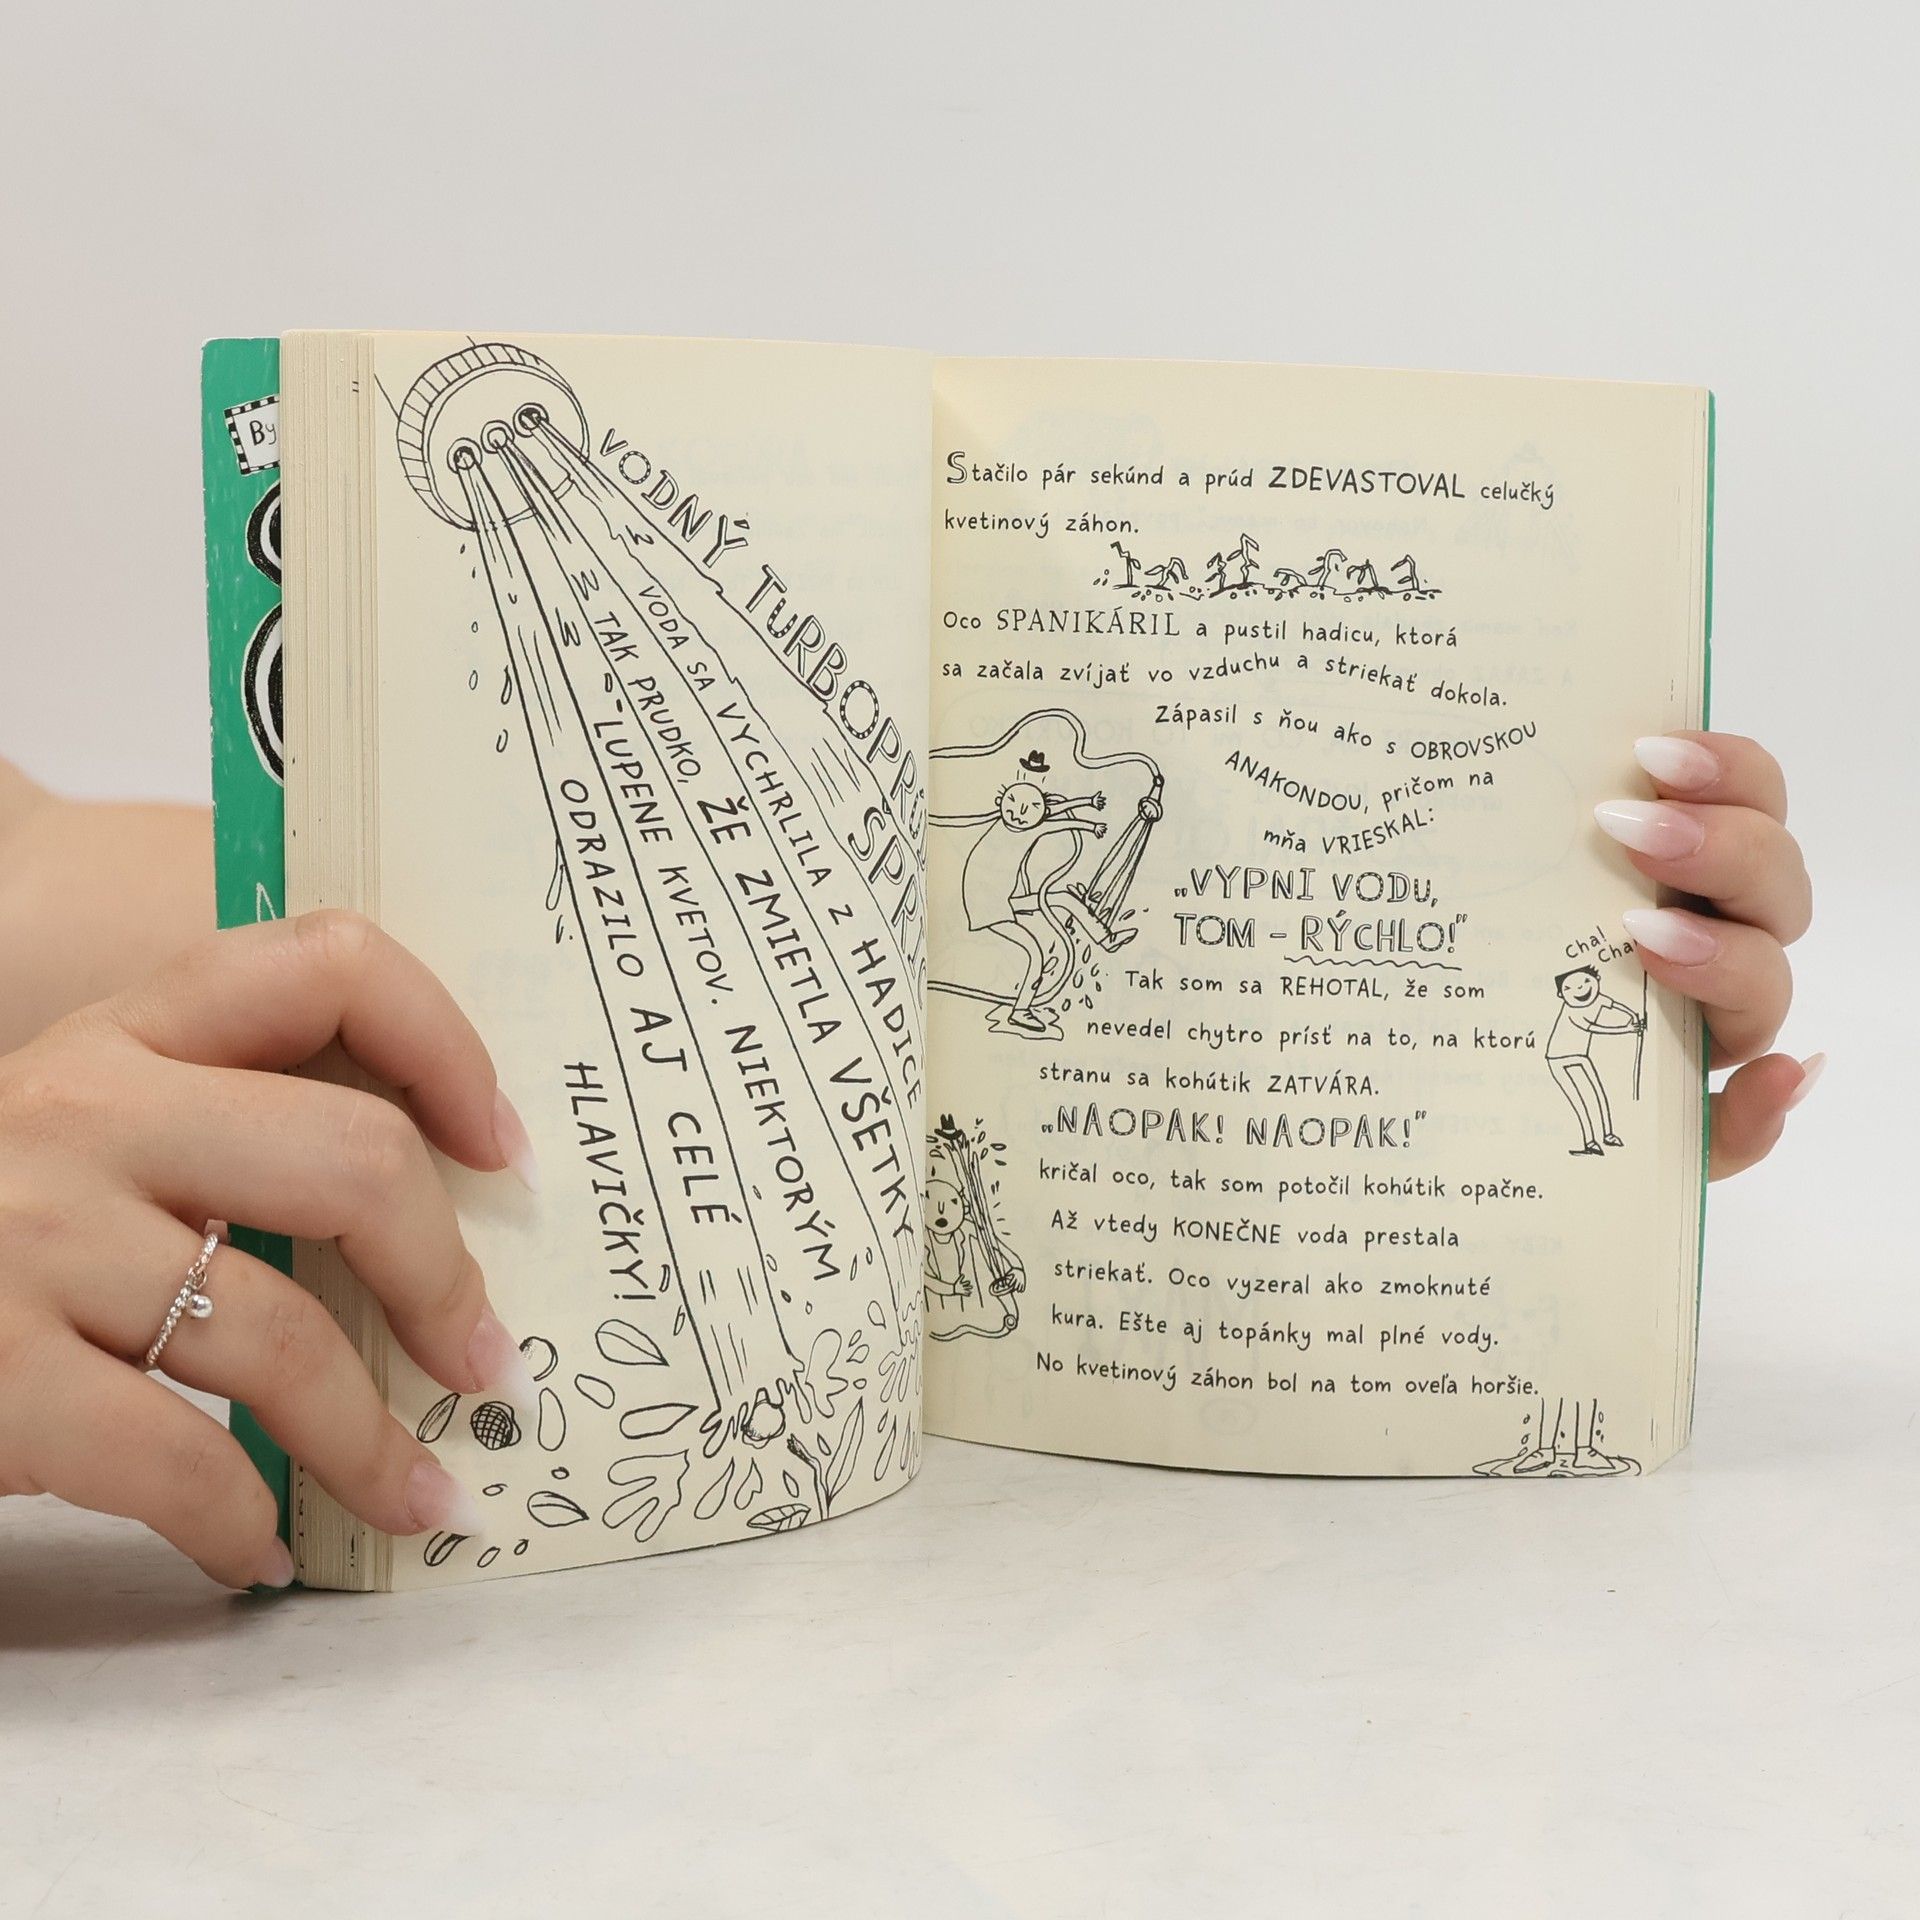 By
VODNÝ TURBOPRÚD
ŠPRIC
VODA SA VYCHRLILA Z HADICE
TAK PRUDKO, ŽE ZMIETLA VŠETKY
LUPENE KVETOV. NIEKTORÝM
ODRAZILO AJ CELÉ
HLAVIČKY!
Stačilo pár sekúnd a prúd ZDEVASTOVAL celučký
kvetinový záhon.
Oco SPANIKÁRIL a pustil hadicu, ktorá
sa začala zvíjať vo vzduchu a striekať dokola.
Zápasil s ňou ako s OBROVSKOU
ANAKONDOU, pričom na
mňa VRIESKAL:
„VYPNI VODU,
TOM – RÝCHLO!"
Cha!
Cha!
Tak som sa REHOTAL, že som
nevedel chytro prísť na to, na ktorú
stranu sa kohútik ZATVÁRA.
„NAOPAK! NAOPAK!"
kričal oco, tak som potočil kohútik opačne.
Až vtedy KONEČNE voda prestala
striekať. Oco vyzeral ako zmoknuté
kura. Ešte aj topánky mal plné vody.
No kvetinový záhon bol na tom oveľa horšie.